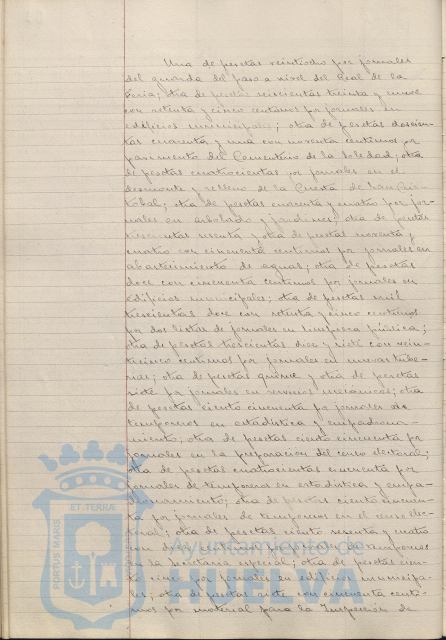 Una de pesetas veintiocho por jornales
del guarda del paso a nivel del Real de la
Feria; otra de pesetas seiscientas treinta y nueve
con setenta y cinco centimos por jornales en
edificios municipales; otra de pesetas doscien-
tas cuarenta y una con noventa centimos por
pavimento del Cementerio de la Soledad; otra
de pesetas cuatrocientas por jornales en el
desmonte y relleno de la Cuesta de San Cris-
tobal; otra de pesetas cuarenta y cuatro por jor-
nales en arbolado y jardines; otra de pesetas
trescientas y otra de pesetas noventa y
cuatro con cincuenta centimos por jornales en
abastecimiento de aguas; otra de pesetas
doce con cincuenta centimos por jornales en
edificios municipales; otra de pesetas mil
trescientas doce con setenta y cinco centimos
por dos listas de jornales en limpieza pública;
otra de pesetas trescientas diez y siete con vein-
ticinco centimos por jornales en nuevas tube-
rias; otra de pesetas quince y otra de pesetas
siete por jornales en mecánicos; otra
de pesetas ciento cincuenta por jornales de
temporeros en estadística y empadrona-
miento; otra de pesetas ciento cincuenta por
jornales en la preparacion del censo electoral;
otra de pesetas cuatrocientas cincuenta por
jornales de temporeros en estadistica y empa-
dronamiento; otra de pesetas ciento cincuen-
ta por jornales de temporeros en el censo elec-
toral; otra de pesetas ciento y cuatro
con centimos por jornales de temporeros
en la Secretaria especial; otra de pesetas cien-
to cinco por jornales en edificios municipa-
les; otra de pesetas siete con cincuenta centi-
mos por material para la Inspección de
PORTUS MARIS
ET TERRAE
Ayuntamiento de
HUELVA